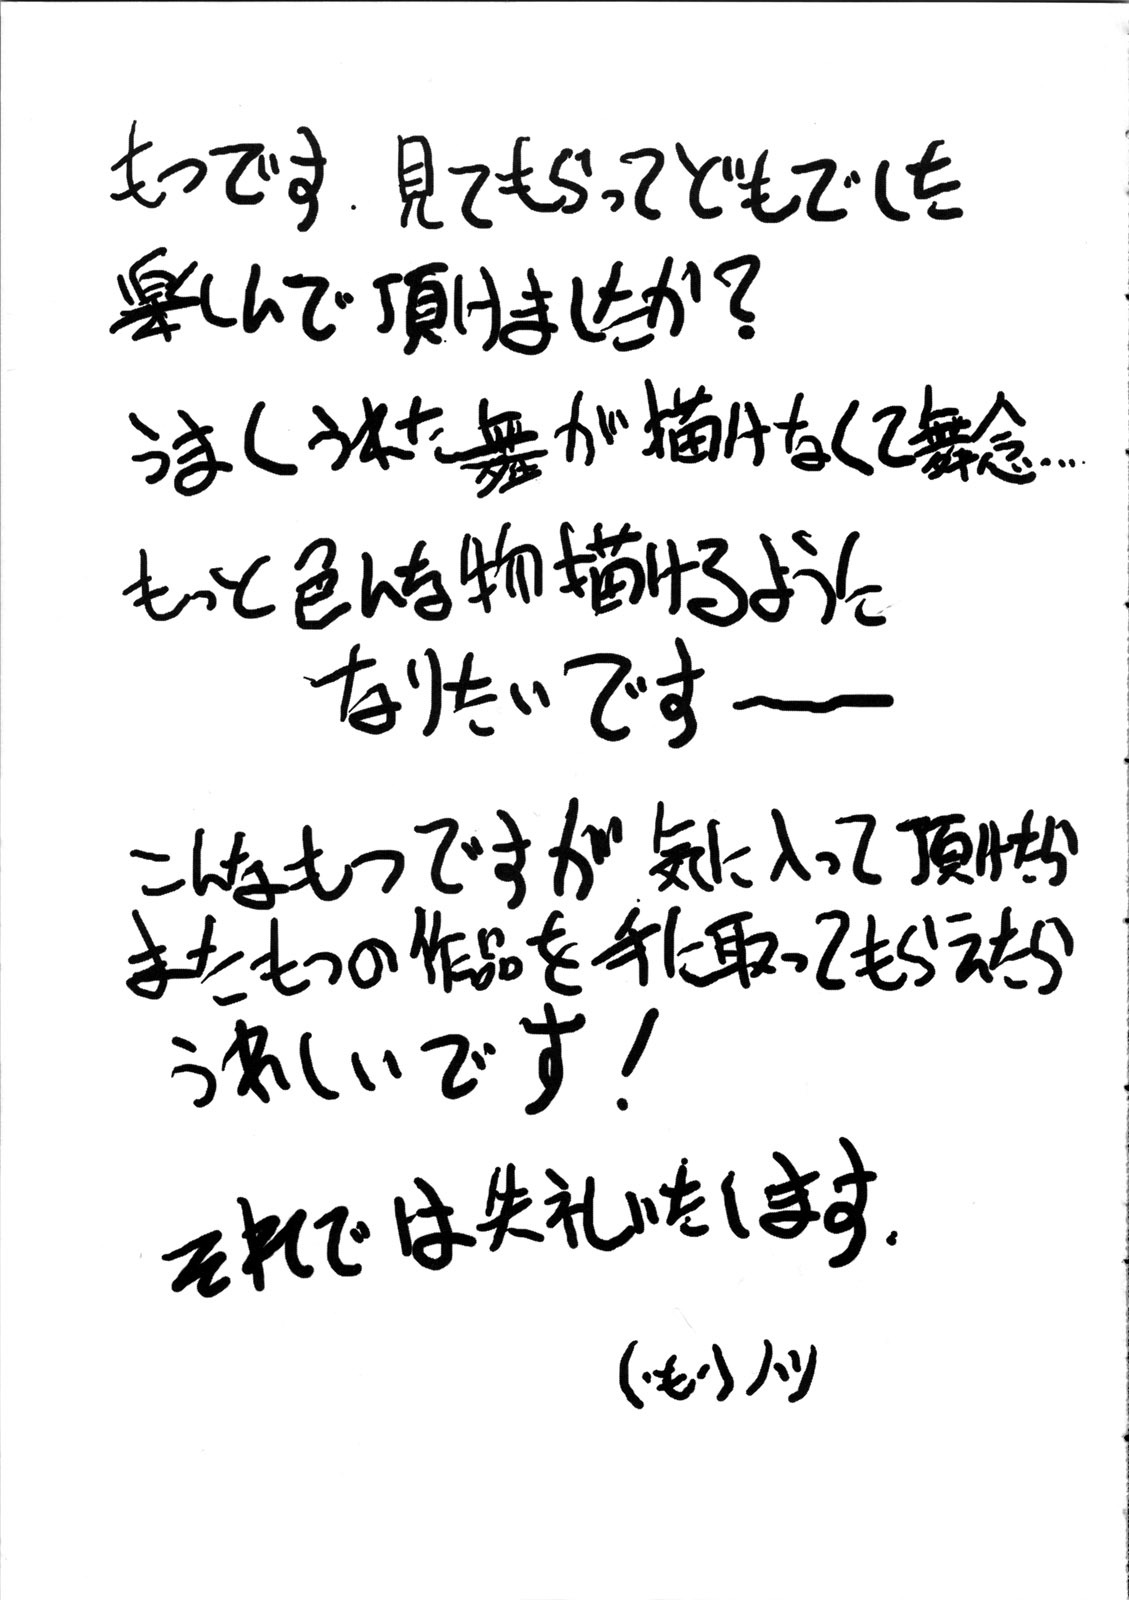 もつです. 見てもらってどもでした
楽しんで頂けましたか?
うまくうれた舞が描けなくて無念....
もっと色んな物描けるように
なりたいです～
こんなもつですが気に入って頂けたら
またもつの作品を手に取ってもらえたら
うれしいです!
それでは失礼いたします.
(・も・)ノシ